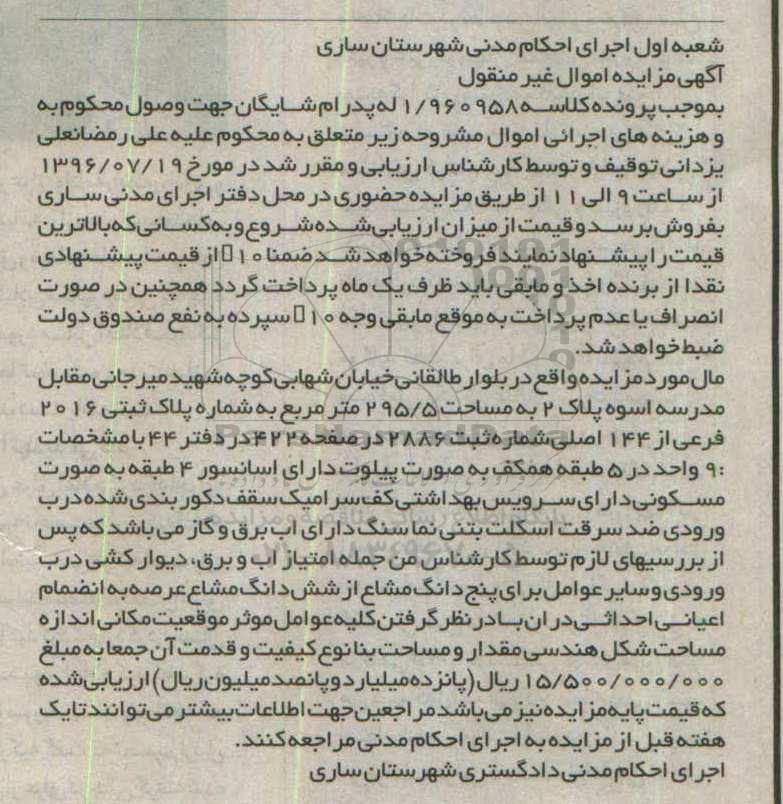 شعبه اول اجرای احکام مدنی شهرستان ساری
آگهی مزایده اموال غیر منقول
بموجب پرونده کلاسه ۱/۹۶۰۹۵۸ له پدرام شایگان جهت وصول محکوم به
و هزینه های اجرائی اموال مشروحه زیر متعلق به محکوم علیه علی رمضانعلی
یزدانی توقیف و توسط کارشناس ارزیابی و مقرر شد در مورخ ۱۳۹۶/۰۷/۱۹
از ساعت ۹ الی ۱۱ از طریق مزایده حضوری در محل دفتر اجرای مدنی ساری
بفروش برسد و قیمت از میزان ارزیابی شده شروع و به کسانی که بالاترین
قیمت را پیشنهاد نمایند فروخته خواهد شد ضمنا ۱۰▯ از قیمت پیشنهادی
نقدا از برنده اخذ و مابقی باید ظرف یک ماه پرداخت گردد همچنین در صورت
انصراف یا عدم پرداخت به موقع مابقی وجه ۱۰▯ سپرده به نفع صندوق دولت
ضبط خواهد شد.
مال مورد مزایده واقع در بلوار طالقانی خیابان شهابی کوچه شهید میرجانی مقابل
مدرسه اسوه پلاک ۲ به مساحت ۲۹۵/۵ متر مربع به شماره پلاک ثبتی ۲۰۱۶
فرعی از ۱۴۴ اصلی شماره ثبت ۲۸۸۶ در صفحه ۴۲۲ در دفتر ۴۴ با مشخصات
:۹ واحد در ۵ طبقه همکف به صورت پیلوت دارای اسانسور ۴ طبقه به صورت
مسکونی دارای سرویس بهداشتی کف سرامیک سقف دکور بندی شده درب
ورودی ضد سرقت اسکلت بتنی نما سنگ دارای اب برق و گاز می باشد که پس
از بررسیهای لازم توسط کارشناس من جمله امتیاز اب و برق، دیوار کشی درب
ورودی و سایر عوامل برای پنج دانگ مشاع از شش دانگ مشاع عرصه به انضمام
اعیانی احداثی در ان با در نظر گرفتن کلیه عوامل موثر موقعیت مکانی اندازه
مساحت شکل هندسی مقدار و مساحت بنا نوع کیفیت و قدمت آن جمعا به مبلغ
۱۵/۵۰۰/۰۰۰/۰۰۰ ریال (پانزده میلیارد و پانصد میلیون ریال) ارزیابی شده
که قیمت پایه مزایده نیز می باشد مراجعین جهت اطلاعات بیشتر می توانند تا یک
هفته قبل از مزایده به اجرای احکام مدنی مراجعه کنند.
اجرای احکام مدنی دادگستری شهرستان ساری